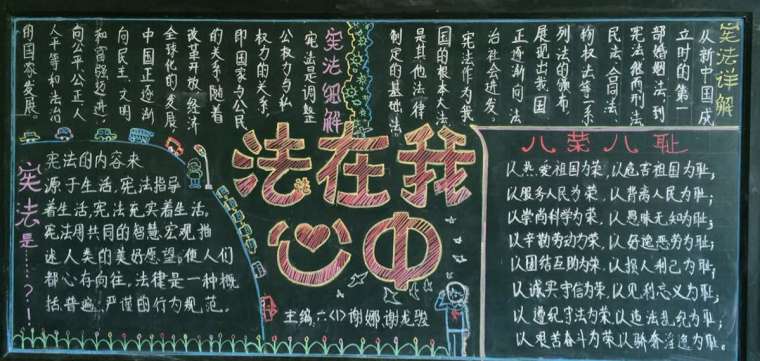 宪法详解
从新中国成
立时的第一
部婚姻法,到
宪法继而刑法
民法合同法
物权法等一系
列法的颁布,
展现出我国
正逐渐向法
治社会进发。
宪法作为我
国的根本大法,
是其他法律
制定的基础法。
宪法细解
宪法是调整
公权力与私
权力的关系,
即国家与公民
的关系,随着
改革开放,经济
全球化的发展
中国正逐渐
向民主,文明
和富强迈进;
向公平公正人
人平等和法治
的国家发展。
法在我
心中
主编:六<1>谢娜谢龙骏
宪法是……?!
宪法的内容来
源于生活,宪法指导
着生活,宪法充实着生活。
宪法用共同的智慧宏观描
述人类的美好愿望。使人们
都心存向往,法律是一种概
括,普遍,严谨的行为规范。
八荣八耻
以热爱祖国为荣,以危害祖国为耻;
以服务人民为荣,以背离人民为耻;
以崇尚科学为荣,以愚昧无知为耻;
以辛勤劳动为荣,以好逸恶劳为耻;
以团结互助为荣,以损人利己为耻;
以诚实守信为荣,以见利忘义为耻;
以遵纪守法为荣,以违法乱纪为耻;
以艰苦奋斗为荣,以骄奢淫逸为耻。